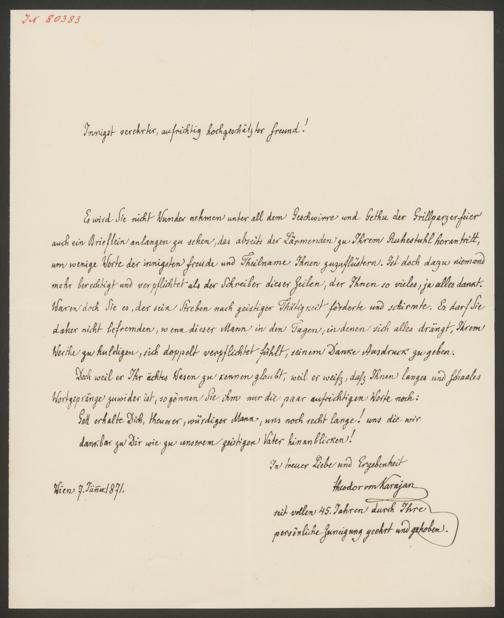 IN 80383
Innigst verehrter, aufrichtig hochgeschätzter Freund!
Es wird Sie nicht Wunder nehmen unter all dem Geschwirre und Gethu der Grillparzerfeier
auch ein Brieflein anlangen zu sehen, das abseits der Lärmenden zu Ihrem Ruhestuhl herantritt,
um wenige Worte der innigsten Freude und Theilname Ihnen zuzuflüstern. Ist doch dazu niemand
mehr berechtigt und verpflichtet als der Schreiber dieser Zeilen, der Ihnen so vieles, ja alles dankt.
Waren doch Sie es, der sein Streben nach geistiger Thätigkeit förderte und schirmte. Es darf Sie
daher nicht befremden, wenn dieser Mann in den Tagen, in denen sich alles drängt, Ihrem
Werthe zu huldigen, sich doppelt verpflichtet fühlt, seinem Danke Ausdruck zu geben.
Doch weil er Ihr ächtes Wesen zu kennen glaubt, weil er weiß, daß Ihnen langes und schaales
Wortgepränge zuwider ist, so gönnen Sie ihm nur die paar aufrichtigen Worte noch:
Gott erhalte Dich, theurer, würdiger Mann, uns noch recht lange! uns die wir
dankbar zu Dir wie zu unserem geistigen Vater hinanblicken!
In treuer Liebe und Ergebenheit
Theodor von Karajan
Wien 7. Jänner 1871.
seit vollen 45 Jahren durch Ihre
persönliche Zuneigung geehrt und gehoben.